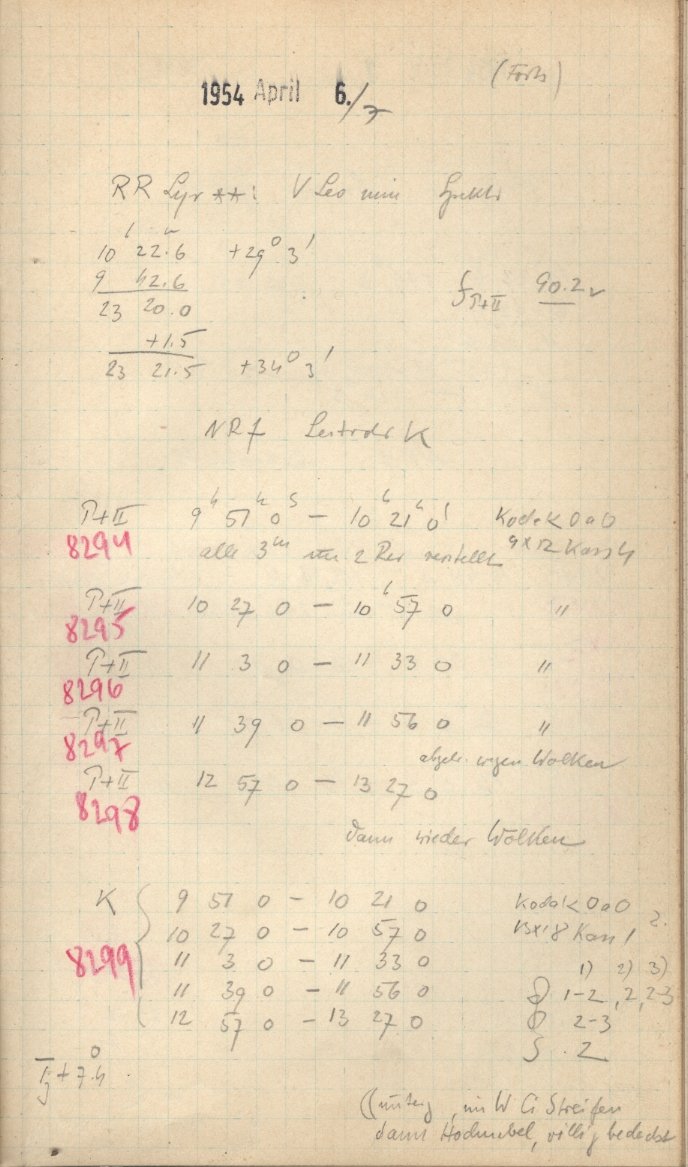 (Forts)
1954 April 6./7
RR Lyr **: V Leo min
10 h 22.6 +29° 3'
9 42.6
23 20.0 90.2
+1.5
23 21.5 +34° 3'
NRf K
P+II 9h 51m 0s – 10h 21m 0s Kodak OaO
8294 alle 3m um 2 Rev verstellt 9x12 Kass 4
P+II 10 27 0 – 10h 57 0 "
8295
P+II 11 3 0 – 11 33 0 "
8296
P+II 11 39 0 – 11 56 0 "
8297 abgebr. wegen Wolken
P+II 12 57 0 – 13 27 0
8298
dann wieder Wolken
K 9 51 0 – 10 21 0 Kodak OaO
10 27 0 – 10 57 0 13x18 Kass 1
8299 11 3 0 – 11 33 0 1) 2) 3)
11 39 0 – 11 56 0 1-2, 2, 2-3
12 57 0 – 13 27 0 2-3
S . 2
+ 7.4°
im W Ci Streifen
dann Hochnebel, völlig bedeckt